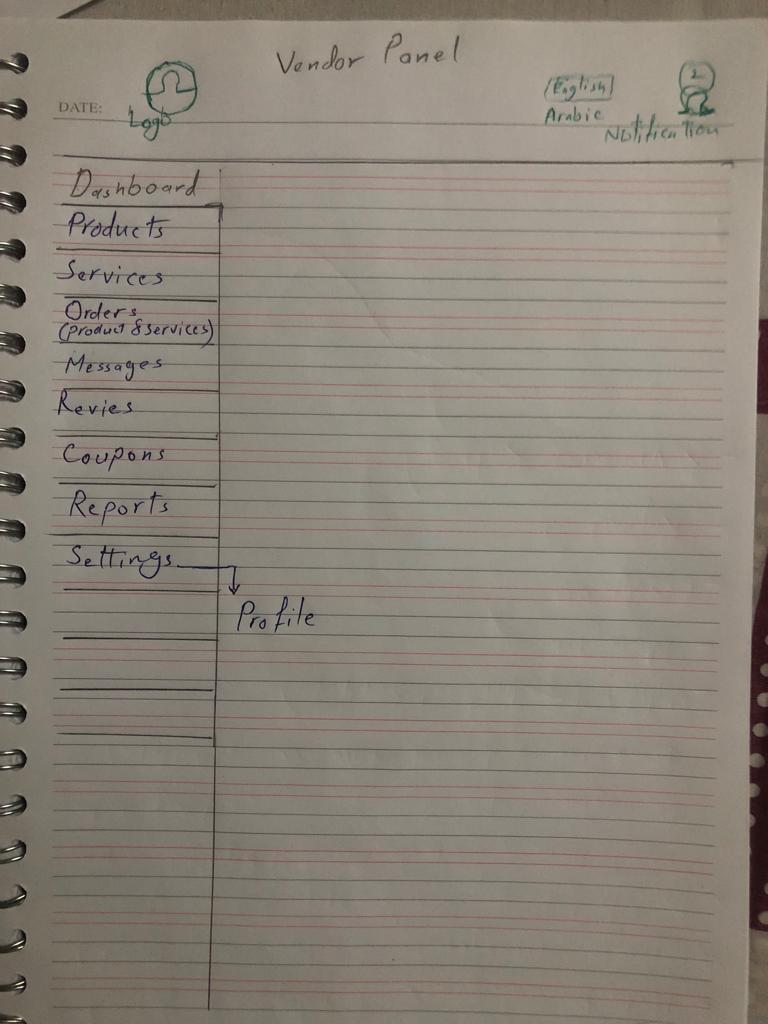 Vendor Panel
DATE:
Logo
English
Arabic
2
Notification
Dashboard
Products
Services
Orders
(product & services)
Messages
Revies
Coupons
Reports
Settings
Profile